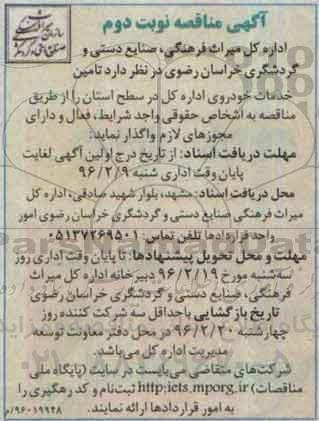 آگهی مناقصه نوبت دوم
اداره کل میراث فرهنگی، صنایع دستی و
گردشگری خراسان رضوی در نظر دارد تامین
خدمات خودروی اداره کل در سطح استان را از طریق
مناقصه به اشخاص حقوقی واجد شرایط، فعال و دارای
مجوزهای لازم واگذار نماید:
مهلت دریافت اسناد: از تاریخ درج اولین آگهی لغایت
پایان وقت اداری شنبه ۹۶/۲/۹
محل دریافت اسناد: مشهد، بلوار شهید صادقی، اداره کل
میراث فرهنگی صنایع دستی و گردشگری خراسان رضوی امور
واحد قراردادها تلفن تماس: ۰۵۱۳۷۲۶۹۵۰۱
مهلت و محل تحویل پیشنهادها: تا پایان وقت اداری روز
سه‌شنبه مورخ ۹۶/۲/۱۹ دبیرخانه اداره کل میراث
فرهنگی، صنایع دستی و گردشگری خراسان رضوی
تاریخ بازگشایی باحداقل سه شرکت کننده روز
چهارشنبه ۹۶/۲/۲۰ در محل دفتر معاونت توسعه
مدیریت اداره کل می‌باشد.
شرکت‌های متقاضی می‌بایست در سایت (پایگاه ملی
مناقصات) http:iets.mporg.ir ثبت‌نام و کد رهگیری را
به امور قراردادها ارائه نمایند.
۹۶۰۱۹۹۴۸/م